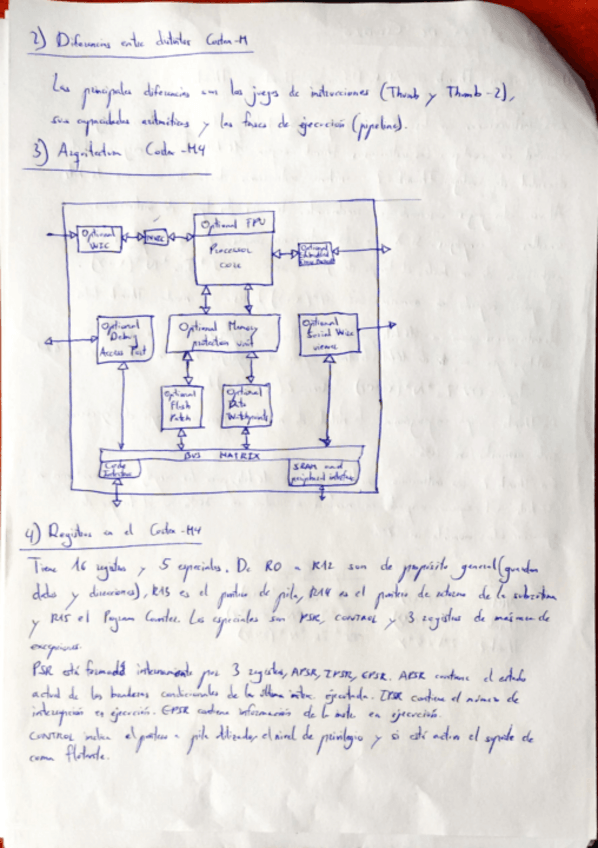 2) Diferencias entre distintos Cortex-M
Las principales diferencias son los juegos de instrucciones (Thumb y Thumb-2),
sus capacidades aritméticas y las fases de ejecución (pipeline).
3) Arquitectura Cortex-M4
Optional FPU
Optional WIC
NVIC
Processor core
Optional Embedded Trace Macrocell
Optional Debug Access Port
Optional Memory protection unit
Optional Serial Wire viewer
Optional Flash Patch
Optional Data Watchpoints
BUS MATRIX
Code Interface
SRAM and peripheral interface
4) Registros en el Cortex-M4
Tiene 16 registros y 5 especiales. De R0 a R12 son de propósito general (guardan
datos y direcciones), R15 es el puntero de pila, R14 es el puntero de retorno de la subrutina
y R15 el Program Counter. Los especiales son PSR, CONTROL y 3 registros de máscara de
excepciones.
PSR está formado internamente por 3 registros, APSR, IPSR, EPSR. APSR contiene el estado
actual de las banderas condicionales de la última instr. ejecutada. IPSR contiene el número de
interrupción en ejecución. EPSR contiene información de la instr. en ejecución.
CONTROL indica el puntero a pila utilizado, el nivel de privilegio y si está activo el soporte de
coma flotante.